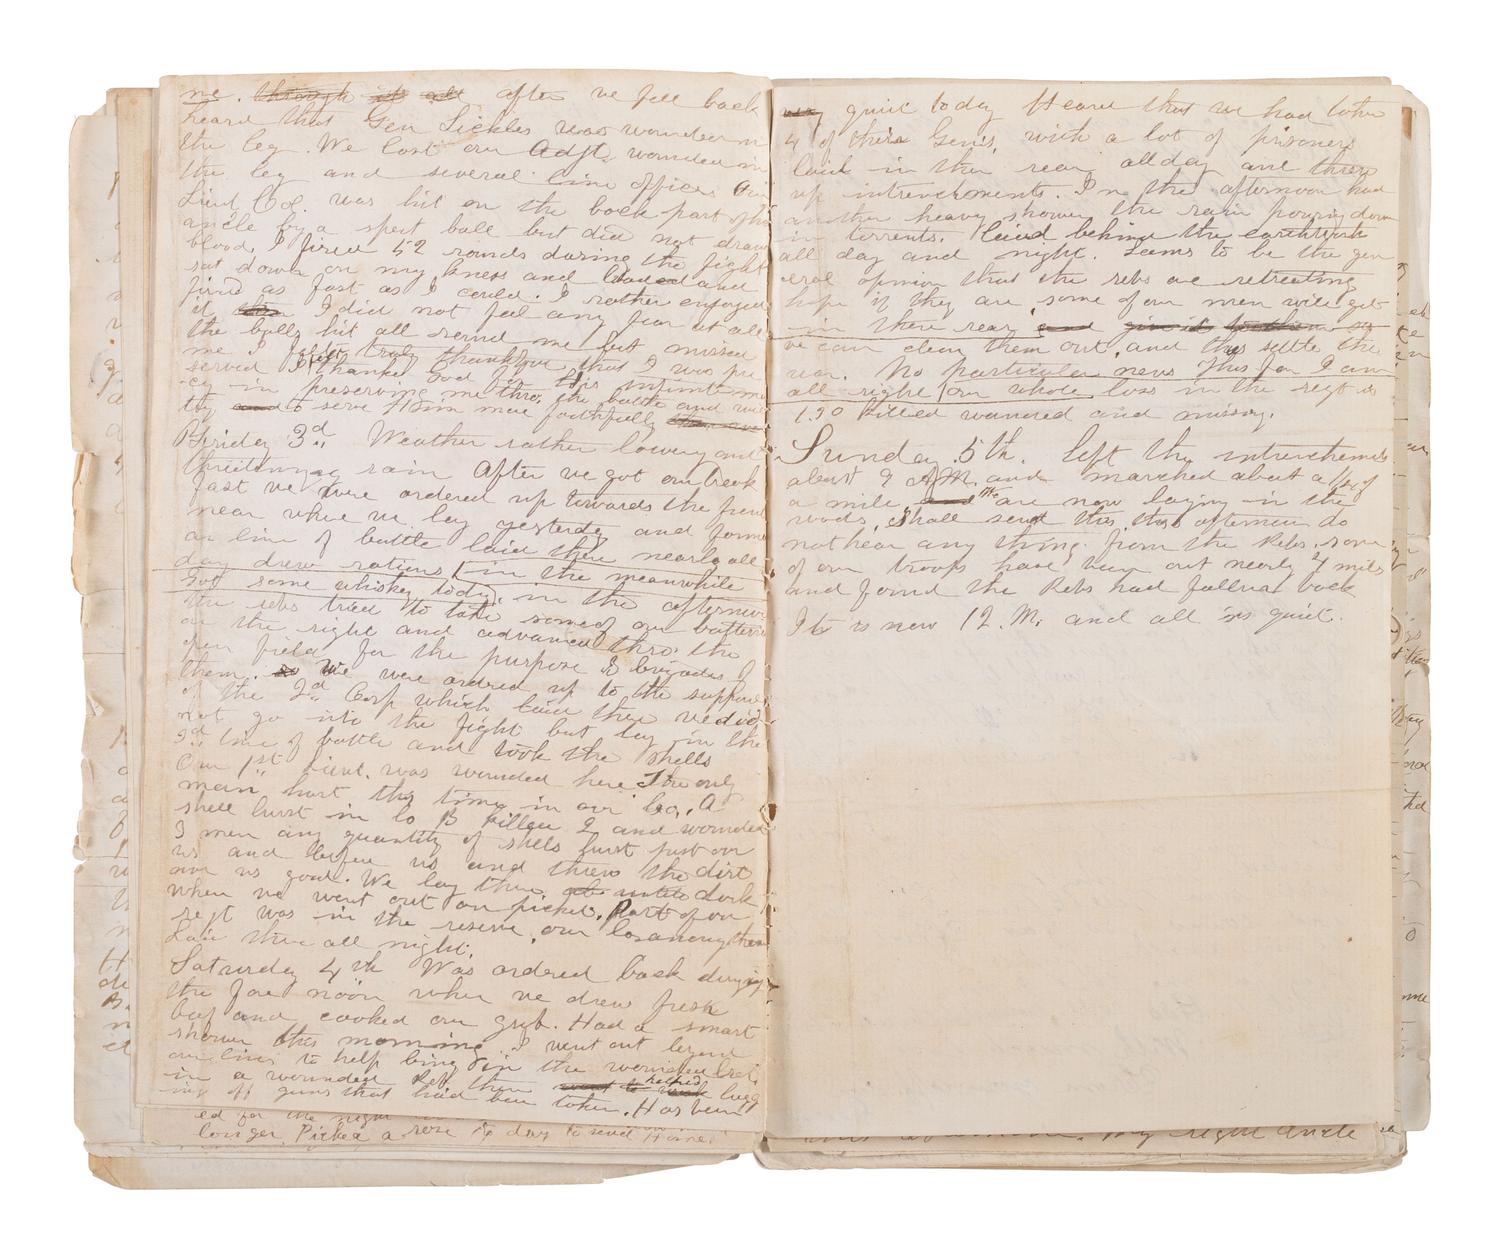 me. through it all after we fell back
heard that Gen Sickles was wounded in
the leg. We lost our Adjt, wounded in
the leg and several line officers Our
Lieut Col. was hit on the back part of his
ancle by a spent ball but did not draw
blood. I fired 52 rounds during the fight
sat down on my kness and loaded and
fired as fast as I could. I rather enjoyed
it I did not feel any fear at all
the balls hit all round me but missed
me I truly thankful that I was pre
served I thanked God for his infinite mer
cy in preserving me thro. the battle and will
try to serve Him more faithfully
Friday 3d. Weather rather lowery and
threitening rain After we got our break
fast we were ordered up towards the front
near where we lay yesterday and formed
a line of battle laid there nearly all
day drew rations in the meanwhile
Got some whiskey today, in the afternoon
the rebs tried to take some of our batteries
on the right and advanced thro. the
open field for the purpose 3 brigades of
them. so We were ordered up to the support
of the 2d Corp which laid there we did
not go into the fight but lay in the
2d line of battle and took the shells
Our 1st Lieut. was wounded here The only
man hurt this time in our Co. A
shell burst in Co B killed 2 and wounded
3 men any quantity of shells burst just over
us and before us and threw the dirt
over us good. We lay there until dark
when we went out on picket. Part of our
regt was in the reserve, our Co among them
Laid there all night.
Saturday 4th Was ordered back during
the fore noon when we drew fresh
beef and cooked our grub. Had a smart
shower this morning I went out beyond
our lines to help bring in the wounded
in a wounded Reb then helped lugg
ing off guns that had been taken. Has been
ed for the night
longer. Picked a rose to day to send Home
very quiet today Heard that we had taken
4 of their Gen's, with a lot of prisoners
laid in the rear all day and threw
up intrenchments. In the afternoon had
another heavy shower the rain pouring down
in torrents. Laid behind the earthwork
all day and night. Seems to be the gen
eral opinion that the rebs are retreating
hope if they are some of our men will get
in there rear and so
we can clean them out, and thus settle the
war. No particular news Thus far I am
all right our whole loss in the regt is
130 killed wounded and missing.
Sunday 5th. left the intrenchments
about 9 A.M. and marched about a 1/4 of
a mile and are now laying in the
woods, shall send this, this afternoon do
not hear any thing from the Rebs, som
of our troops have been out nearly 4 miles
and found the Rebs had fallen back
It is now 12. M. and all is quiet.
My right ancle